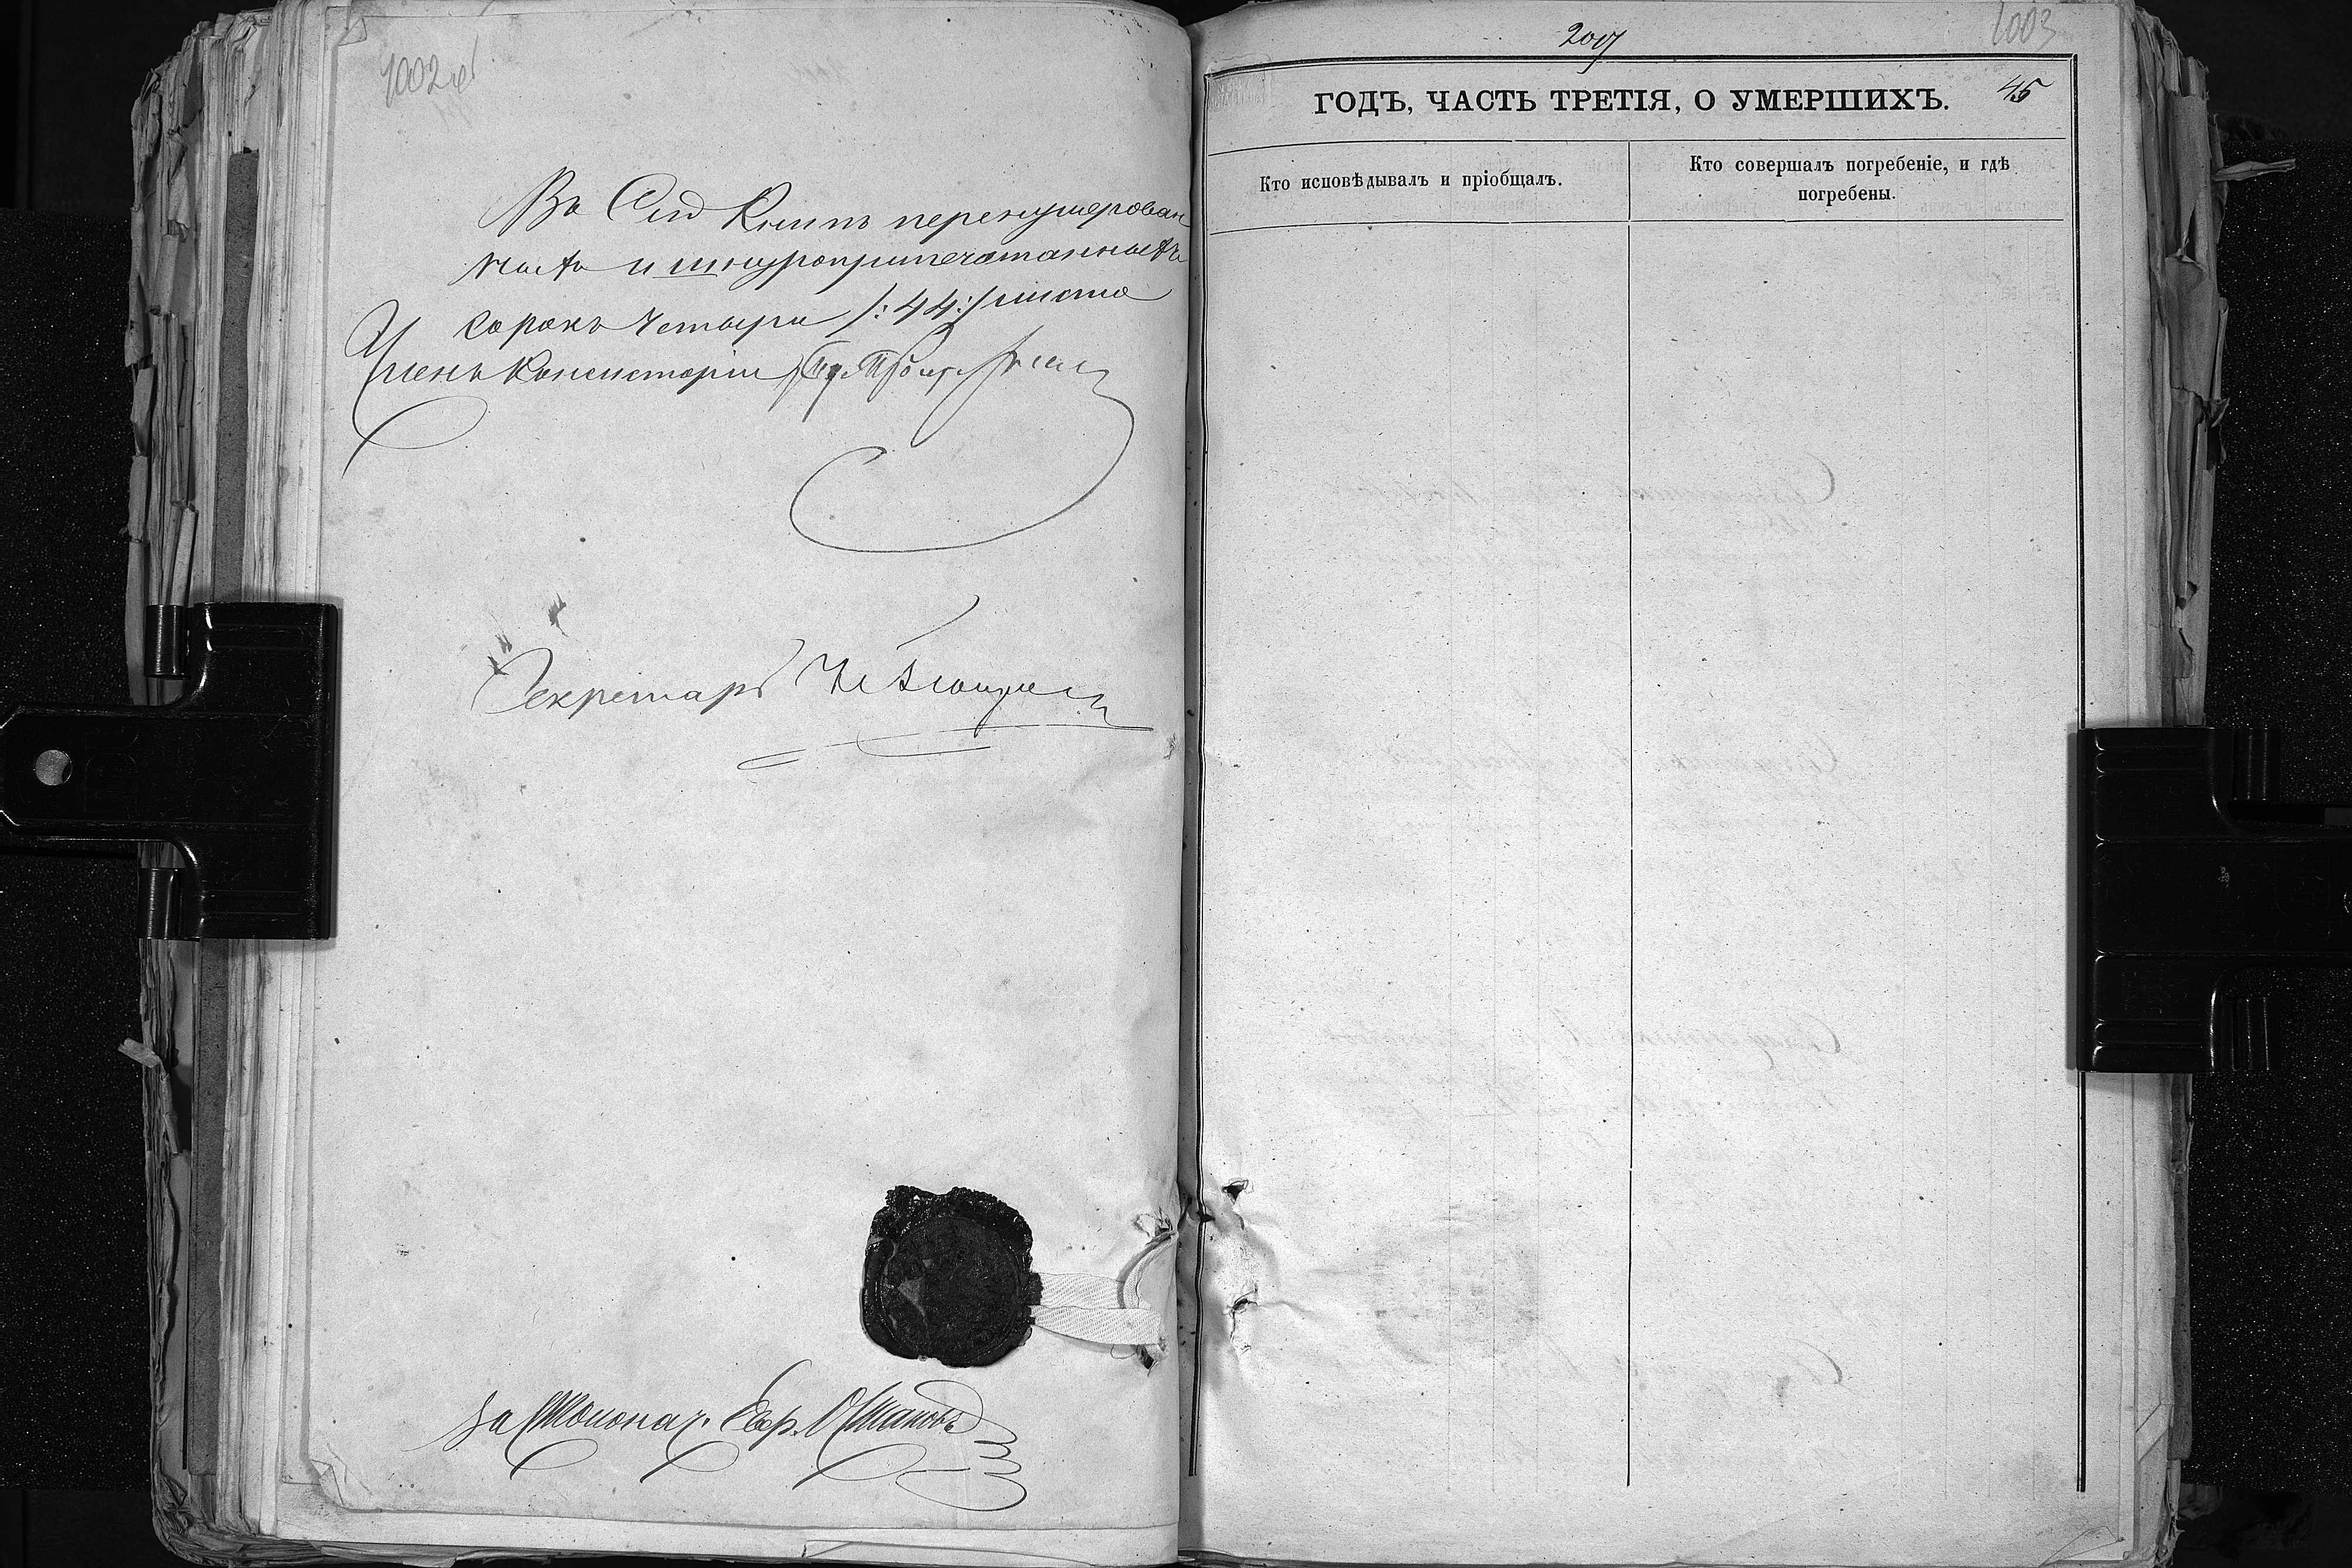 1002об
Въ Сей Книгѣ перенумерован
ныхъ и шнуроприпечатанныхъ
сорокъ четыре /:44:/ листа
Членъ Консисторіи
Секретарь
За Столонач. Евр.
1003
45
ГОДЪ, ЧАСТЬ ТРЕТІЯ, О УМЕРШИХЪ.
Кто исповѣдывалъ и пріобщалъ.
Кто совершалъ погребеніе, и гдѣ
погребены.